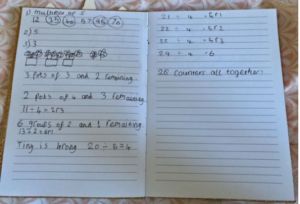 1) multiples of 5
12 35 40 52 45 20
2) 5
3) 3
3 pots of 3 and 2 remaining.
2 pots of 4 and 3 remaining
11 ÷ 4 = 2r3
6 groups of 2 and 1 remaining.
13 ÷ 2 = 6r1
Ting is wrong 20 ÷ 5 = 4
21 ÷ 4 = 5r1
22 ÷ 4 = 5r2
÷ 4 = 5r3
24 ÷ 4 = 6
26 counters all together.